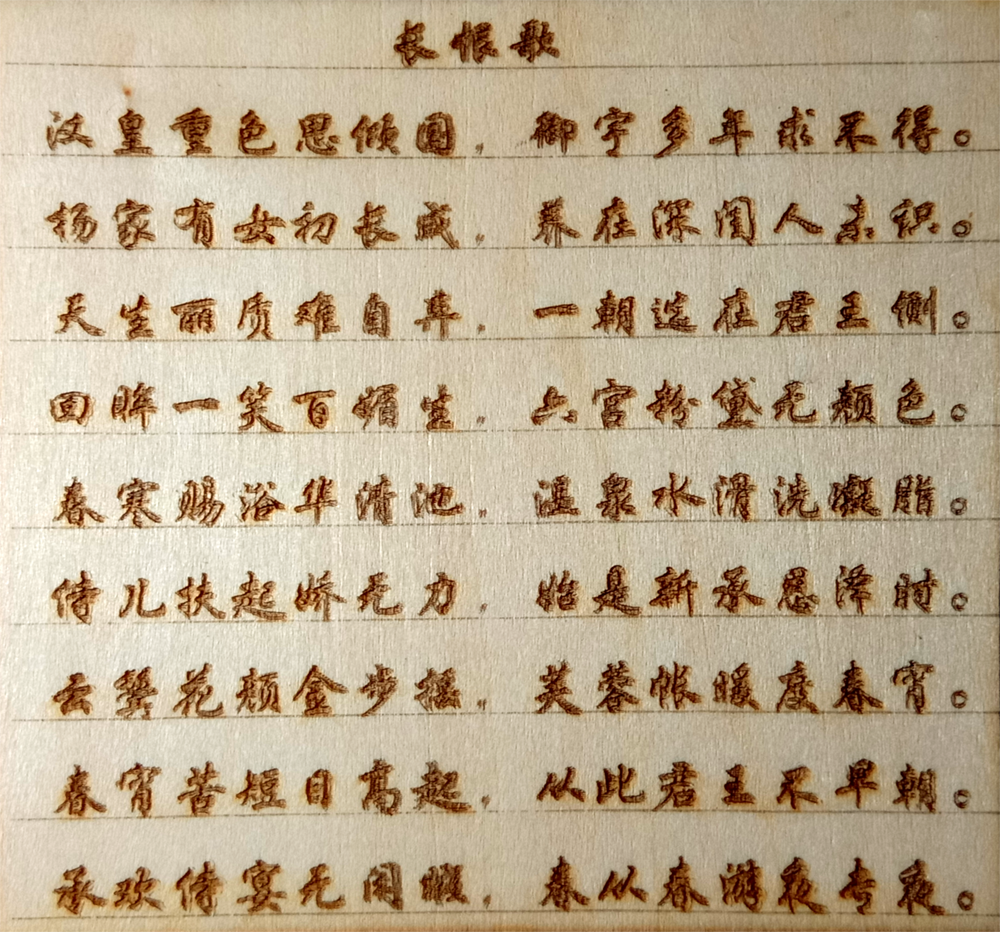 长恨歌
汉皇重色思倾国，御宇多年求不得。
杨家有女初长成，养在深闺人未识。
天生丽质难自弃，一朝选在君王侧。
回眸一笑百媚生，六宫粉黛无颜色。
春寒赐浴华清池，温泉水滑洗凝脂。
侍儿扶起娇无力，始是新承恩泽时。
云鬓花颜金步摇，芙蓉帐暖度春宵。
春宵苦短日高起，从此君王不早朝。
承欢侍宴无闲暇，春从春游夜专夜。